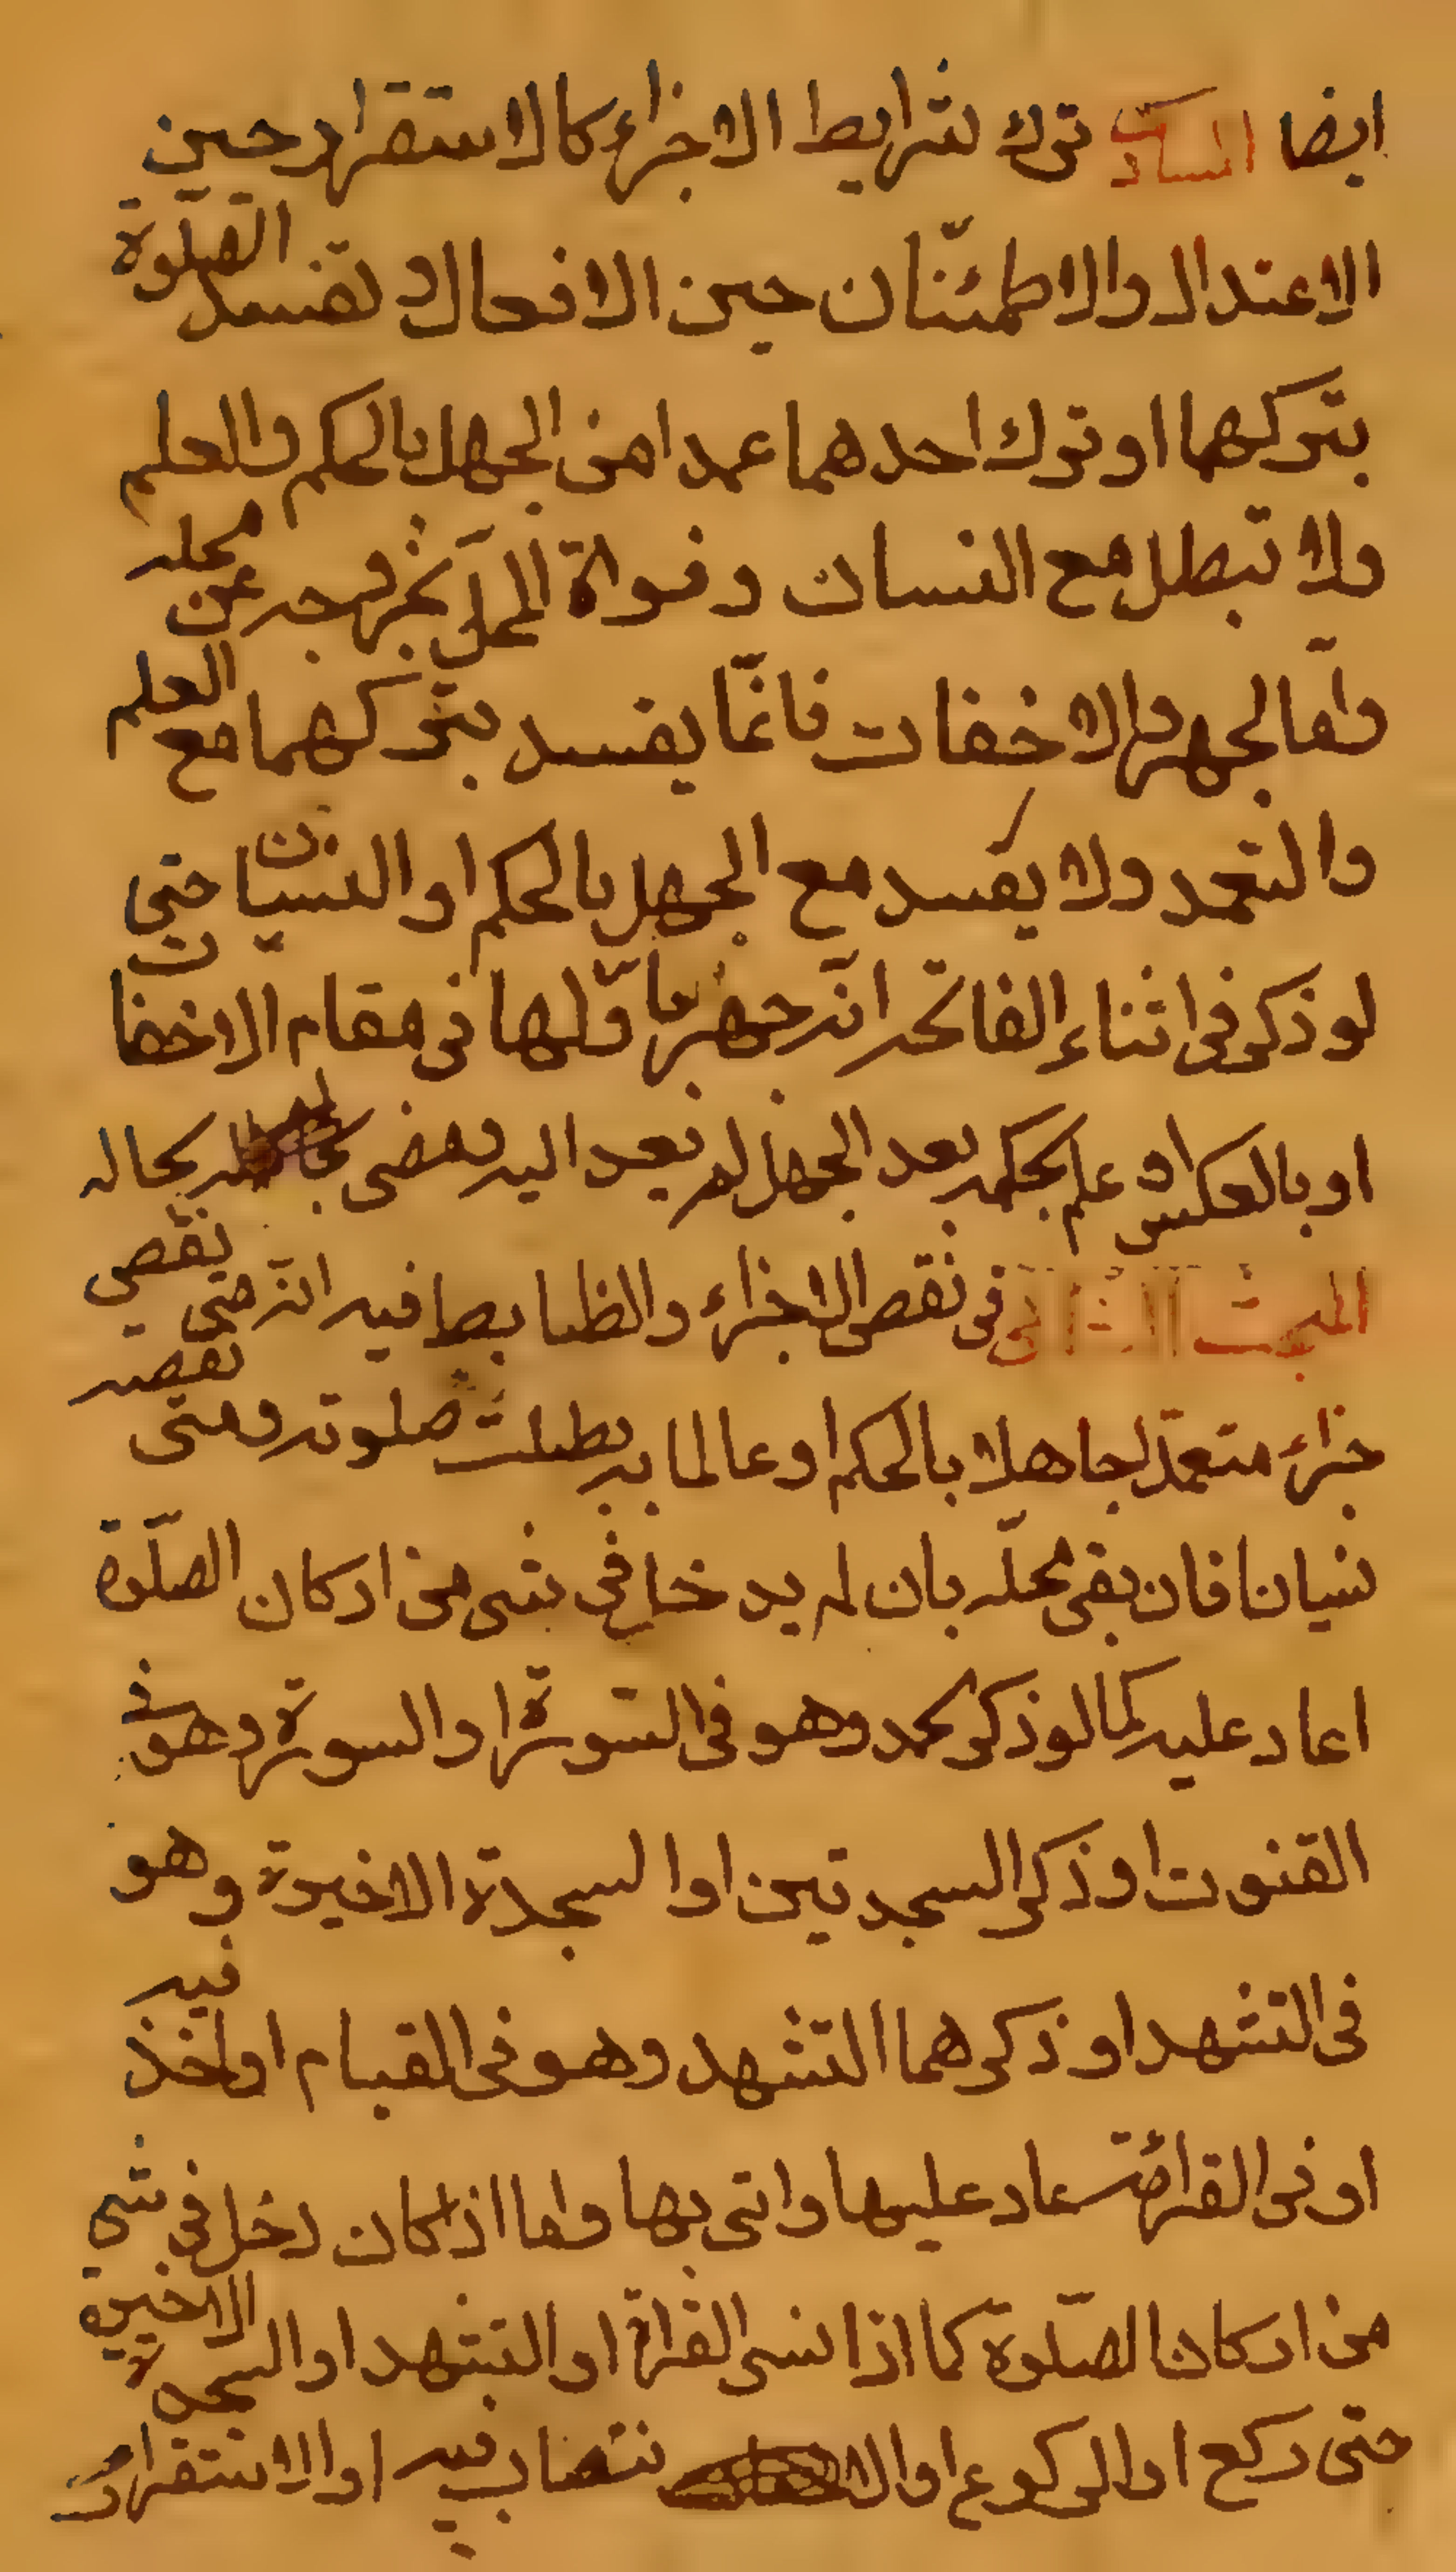 ايضا السادس ترك شرايط الاجزاء كالاستقرار حين
الاعتدال والاطمئنان حين الافعال و تفسد الصلوة
بتركها او ترك احدهما عمدا من الجهل بالحكم والعلم
ولا تبطل مع النسان وفواة المحل بخروجه عن محله
واما الجهر والاخفات فانما يفسد بتركهما مع العلم
والتعمد ولا يفسد مع الجهل بالحكم او النسيان حتى
لو ذكر في اثناء الفاتحه انه جهر باولها في مقام الاخفات
او بالعكس او علم بحكمه بعد الجهل لم يعد اليه ومضى بحاله
المبحث الثاني في نقص الاجزاء والظابط فيه انه متى نقص
جزاء متعمدا جاهلا بالحكم او عالما به بطلت صلوته ومتى نقصه
نسيانا فان بقى محله بان لم يدخل في شى من اركان الصلوة
اعاد عليه كما لو ذكر الحمد وهو في السورة او السورة وهو في
القنوت او ذكر السجدتين او السجدة الاخيرة وهو
في التشهد او ذكرهما التشهد وهو في القيام او اخذ فيه
او في القرائة عاد عليها واتى بها واما اذا كان دخل في شى
من اركان الصلوة كما اذا نسى القراة او التشهد او السجدة الاخيرة
حتى ركع او الركوع او الانتصاب فيه او الاستقرار